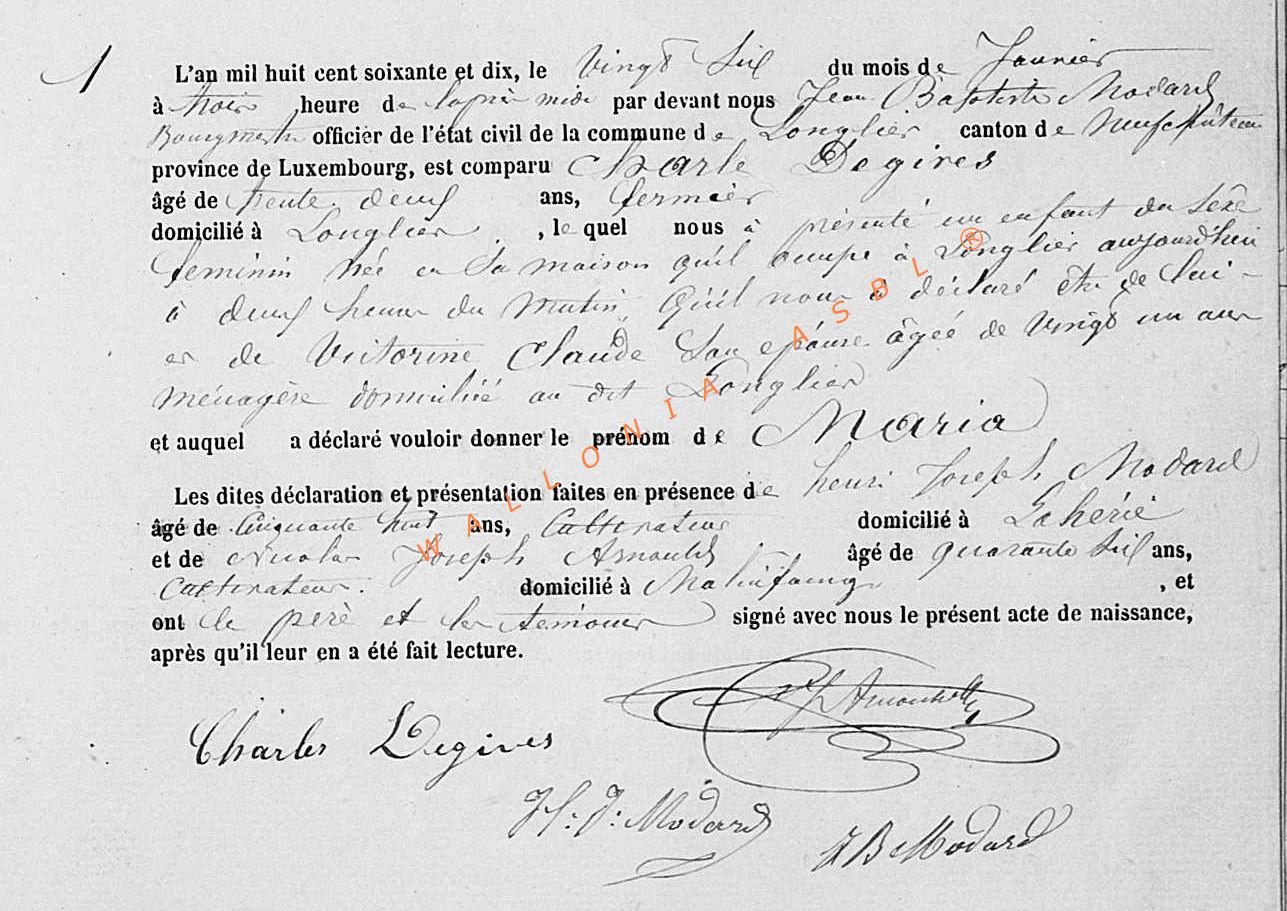 1
L'an mil huit cent soixante et dix, le Vingt Six du mois de Janvier
à trois heure de laprès midi par devant nous Jean Baptiste Modard
Bourgmestre officier de l'état civil de la commune de Longlier canton de Neufchâteau
province de Luxembourg, est comparu Charle Degives
âgé de trente deux ans, fermier
domicilié à Longlier, lequel nous à présenté un enfant du Sexe
feminin née en Sa maison qu'il occupe à Longlier aujourd'hui
à deux heures du matin, Qu'il nous à déclaré être de lui
et de Victorine Claude Son epouse âgée de Vingt un ans
ménagère domiciliée au dit Longlier
et auquel a déclaré vouloir donner le prénom de Maria
Les dites déclaration et présentation faites en présence de henri Joseph Modard
âgé de Cinquante huit ans, Cultivateur domicilié à Lahérie
et de Nicolas Joseph Arnould âgé de quarante Six ans,
Cultivateur. domicilié à Malinfaing, et
ont le père et les témoins signé avec nous le présent acte de naissance,
après qu'il leur en a été fait lecture.
Arnould
Charles Degives
H. J. Modard
J B Modard
WALLONIA ASBL ®